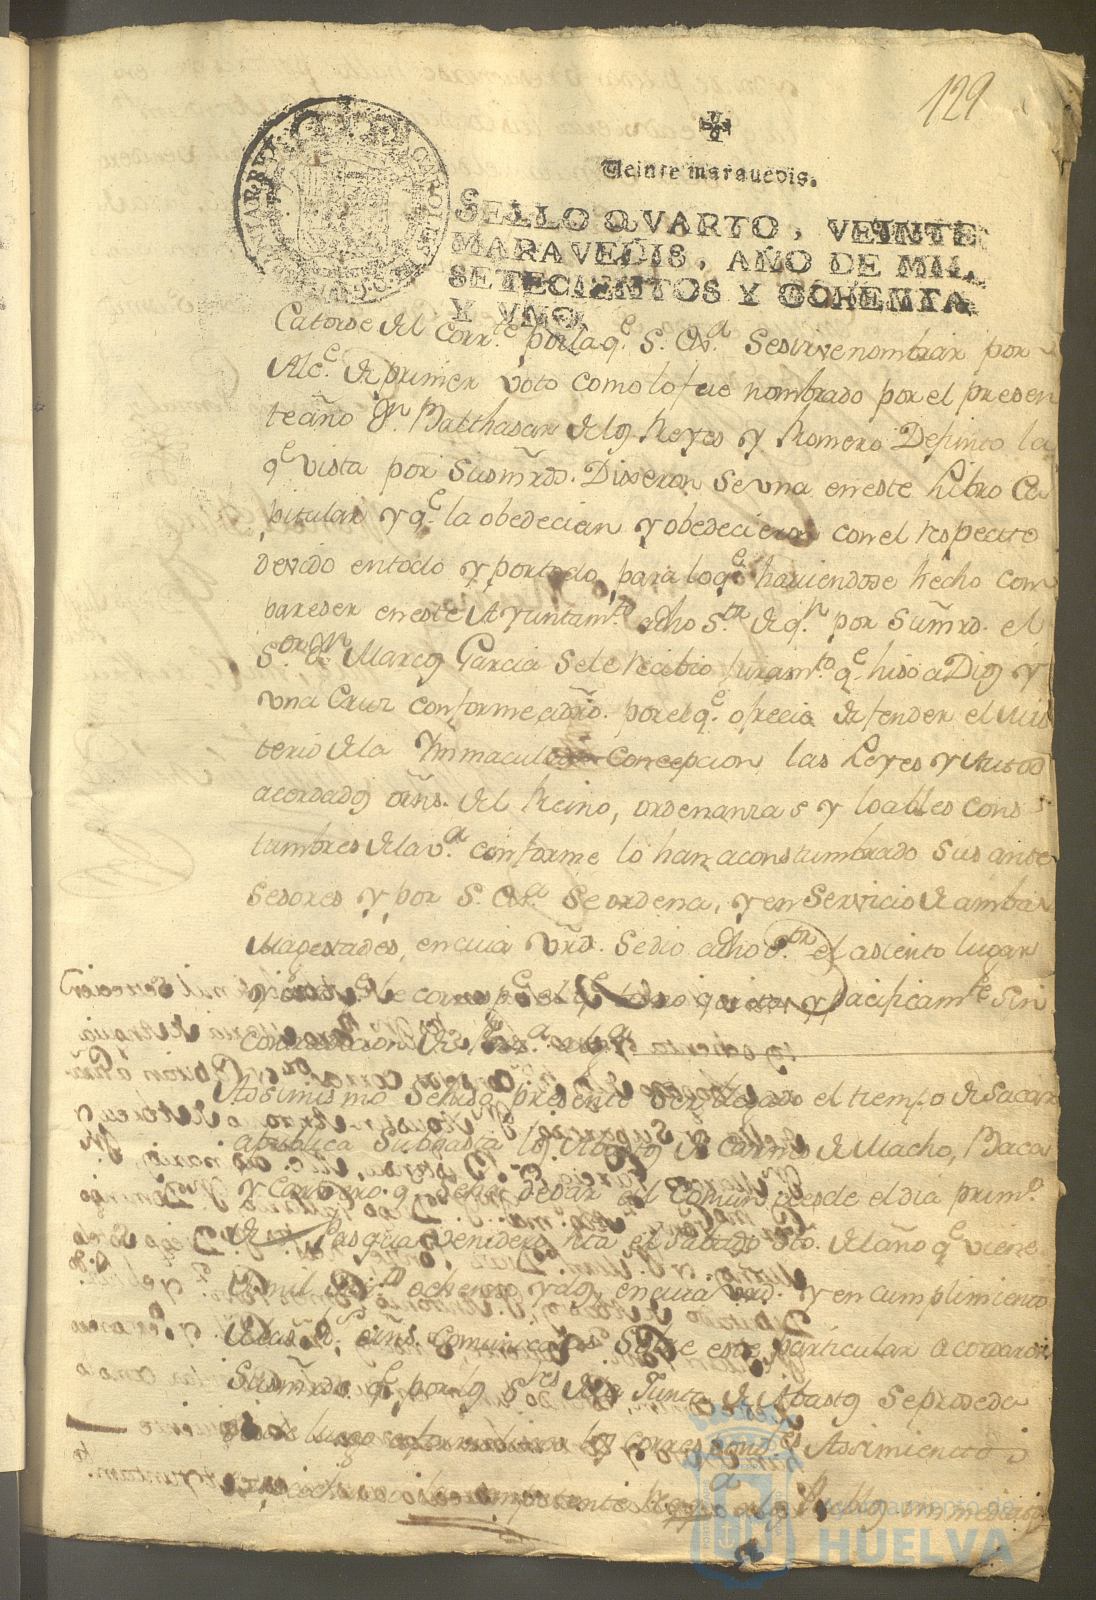 129
Veinte maravedis.
SELLO QVARTO, VEINTE
MARAVEDIS, AÑO DE MIL
SETECIENTOS Y OCHENTA
Y VNO.
Catorse del Corr.te por la q.e S. Exª. se sirve nombrar por
Alc.e de primer voto como lo fue nombrado por el presen
te año Dn. Balthasar de los Reyes y Romero Defunto la
q.e vista por sus mrds. Dixeron se una en este Libro Ca
pitular y q.e la obedecian y obedecieron con el respecto
devido en todo y por todo, para lo q.e haviendose hecho com
pareser en este Ayuntam.to dho S.or de q.n por su mrd. el
S.or Dn. Marcos Garcia se le recibio Juram.to q.e hiso a Dios y
una Cruz conforme a dro. por el q.e ofrecio defender el Mis
terio de la Immaculada Concepcion las Leyes y Autos
acordados del Reino, ordenanzas y loables cos
tumbres de la v.ª conforme lo han acostumbrado sus ante
sesores y por S. Exª. se ordena, y en servicio de ambas
Magestades, en cuia vrd. se dio a dho S.or el asiento lugar
y pacificam.te sin
contradicion de
Assimismo se hiso presente ser llegado el tiempo de sacar
a publica Subhasta los Abastos de Carnes de Macho, Baca
y Carnero q.e se han de dar al Comun desde el dia prim.o
de Pasqua venidero hta el Sabado Sto. del año q.e viene
de mil ochenta y dos, en cuia vrd. y en cumplimiento
de las comunicadas sobre este particular acordaron
sus mrds. q.e por los S.res de la Junta de Abastos se proseda
desde luego
a los Pueblos inmediatos
Ayuntamiento de
HUELVA